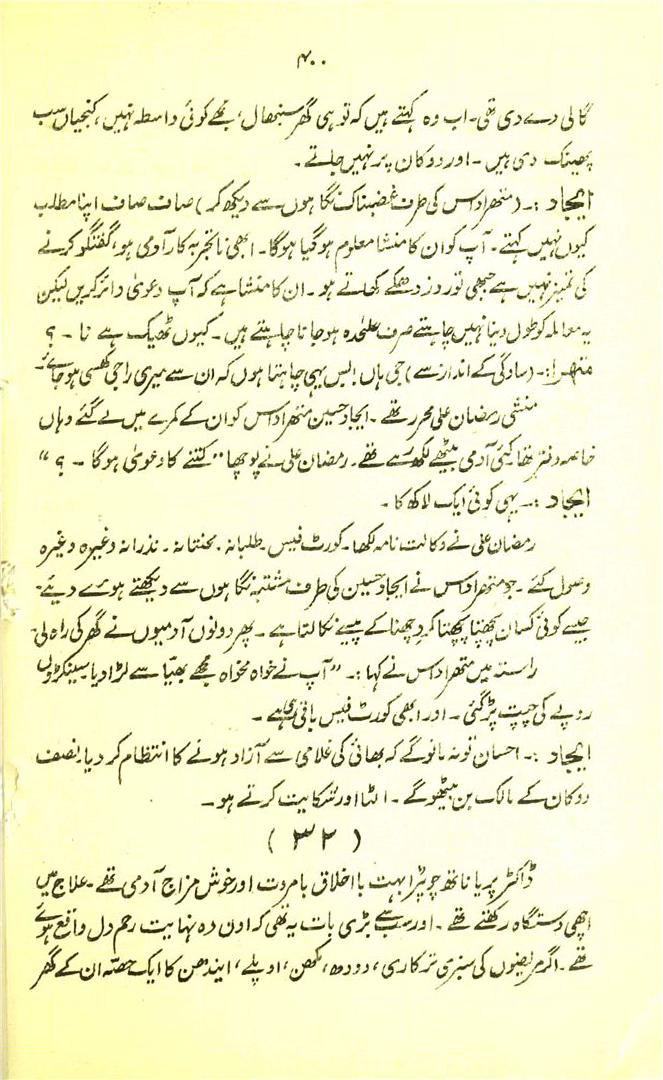 ۴۰۰
گالی دے دی تھی۔ اب وہ کہتے ہیں کہ تو ہی گھر سنبھال، مجھے کوئی واسطہ نہیں، کنجیاں سب
پھینک دی ہیں۔ اور دوکان پر نہیں جاتے۔
ایجاد :۔ (متھرا داس کی طرف غضبناک نگاہوں سے دیکھ کر) صاف صاف اپنا مطلب
کیوں نہیں کہتے۔ آپ کو ان کا منشا معلوم ہو گیا ہوگا۔ ابھی ناتجربہ کار آدمی ہو، گفتگو کرنے
کی تمیز نہیں ہے جبھی تو روز دھکے کھاتے ہو۔ ان کا منشا ہے کہ آپ دعویٰ دائر کریں لیکن
یہ معاملہ کو طول دینا نہیں چاہتے صرف علٰحدہ ہو جانا چاہتے ہیں۔ کیوں ٹھیک ہے نا ۔ ؟
متھرا :۔ (سادگی کے انداز سے) جی ہاں! بس یہی چاہتا ہوں کہ ان سے میری راجی کھسی ہو جائے۔
منشی رمضان علی محرر تھے۔ ایجاد حسین متھرا داس کو ان کے کمرے میں لے گئے وہاں
خاصہ دفتر تھا کئی آدمی بیٹھے لکھ رہے تھے۔ رمضان علی نے پوچھا "کتنے کا دعویٰ ہوگا ۔ ؟"
ایجاد :۔ یہی کوئی ایک لاکھ کا۔
رمضان علی نے وکالت نامہ لکھا۔ کورٹ فیس۔ طلبانہ۔ محنتانہ۔ نذرانہ وغیرہ وغیرہ
وصول کئے۔ جو متھرا داس نے ایجاد حسین کی طرف مشتبہ نگاہوں سے دیکھتے ہوئے دیئے۔
جیسے کوئی کسان چھنتا پچھتا کر دچھنا کے پیسے نکالتا ہے۔ پھر دونوں آدمیوں نے گھر کی راہ لی۔
راستہ میں متھرا داس نے کہا :۔ "آپ نے خواہ مخواہ مجھے بھیّا سے لڑا دیا سینکڑوں
روپے کی چپت پڑ گئی۔ اور ابھی کورٹ فیس باقی ہی ہے۔
ایجاد :۔ احسان تو نہ مانو گے کہ بھائی کی غلامی سے آزاد ہونے کا انتظام کر دیا۔ نصف
دوکان کے مالک بن بیٹھو گے۔ الٹا اور شکایت کرتے ہو۔
(۳۲)
ڈاکٹر پریا ناتھ چوپڑا بہت بااخلاق بامروت اور خوش مزاج آدمی تھے۔ علاج میں
اچھی دستگاہ رکھتے تھے۔ اور سب سے بڑی بات یہ تھی کہ اون دہ نہایت رحم دل واقع ہوئے
تھے۔ اگر مریضوں کی سبزی ترکاری، دودھ، مکھن، اوپلے، ایندھن کا ایک حصّہ ان کے گھر